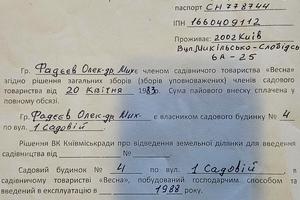 паспорт СН778744
ІПН 1660409112
Проживає: 2002 Київ
Вул. Микільсько-Слобідсь
6А - 25
Гр. Фадєєв Олек-др Мих є членом садівничого товариства «Весна»
згідно рішення загальних зборів (зборів уповноважених) членів садового
товариства від 20 Квітня 1983р. Сума пайового внеску сплачена у
повному обсязі.
Гр. Фадєєв Олек-др Мих. є власником садового будинку № 4
по вул. 1 Садовій
Рішення ВК Київміськради про відведення земельної ділянки для
садівництва від № .
Садовий будинок № 4 по вул. 1 Садовій в
садівничому товаристві «Весна», побудований господарчим способом та
введений в експлуатацію в 1988 року.